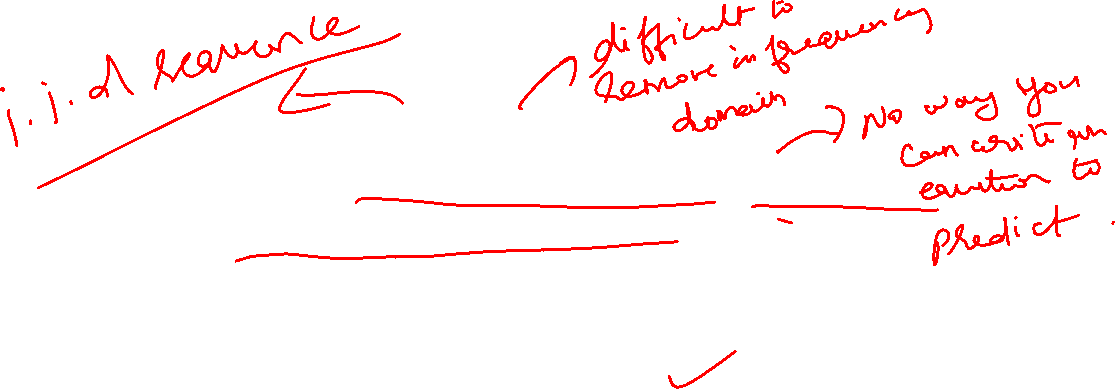 i.i.d sequence
difficult to
remove in frequency
domain
No way you
can write an
equation to
predict.